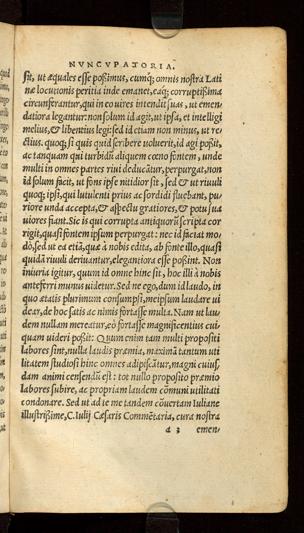 NVNCVPATORIA.
sit, ut æquales esse poßimus, cumq́; omnis nostra Lati
næ locutionis peritia inde emanet, eaq́; corruptißima
circunferantur, qui in eo uires intendit suas, ut emen/
datiora legantur: non solum id agit, ut ipsa, et intelligi
melius, & libentius legi: sed id etiam non minus, ut re/
ctius. quoq; si quis quid scribere uoluerit, id agi poßit,
ac tanquam qui turbidũ aliquem cœno fontem, unde
multi in omnes partes riui deducãtur, perpurgat, non
id solum facit, ut fons ipse nitidior sit, sed & ut riuuli
quoq; ipsi, qui lutulenti prius ac sordidi fluebant, pu/
riore unda accepta, & aspectu gratiores, & potu sua
uiores fiant. Sic is qui corrupta antiquorũ scripta cor
rigit, quasi fontem ipsum perpurgat: nec id faciat mo/
dò, sed ut ea etiã, quæ à nobis edita, ab fonte illo, quasi
quidã riuuli deriuantur, elegantiora esse poßint. Non
iniuria igitur, quum id omne hinc sit, hoc illi à nobis
anteferri munus uidetur. Sed ne ego, dum id laudo, in
quo ætatis plurimum consumpsi, meipsum laudare ui
dear, de hoc satis ac nimis fortasse multa. Nam ut lau/
dem nullam mereatur, eò fortasse magnificentius cui/
quam uideri poßit: Quum enim tam multi propositi
labores sint, nulla laudis præmia, maximã tantum uti
litatem studiosi hinc omnes adipiscãtur, magni cuius/
dam animi censendũ est: tot nullo proposito præmio
labores subire, ac propriam laudem cõmuni utilitati
condonare. Sed ut ad te me tandem cõuertam Iuliane
illustrißime, C. Iulij Cæsaris Commẽtaria, cura nostra
a 3 emen/